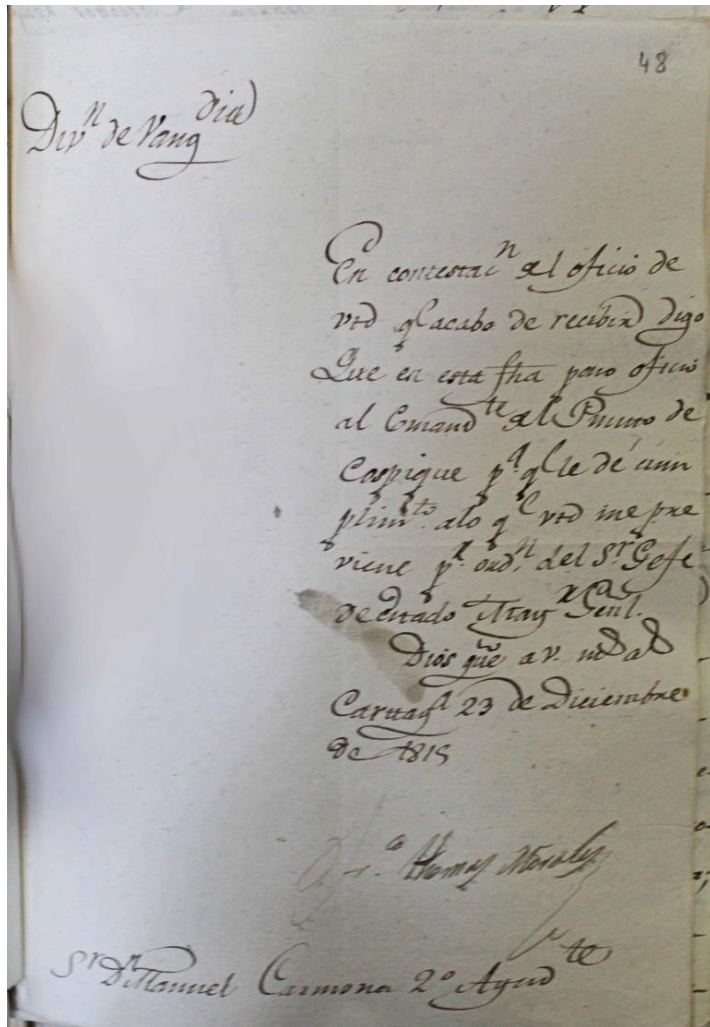 48
Div.n de Vang.dia
En contestac.n al oficio de
vtd q.e acabo de recibir digo
Que en esta fha paso oficio
al Comand.te del Punto de
Cospique p.a q.e le dé cum
plim.to alo q.e vtd me pre
viene p.r ord.n del S.r Gefe
de estado May.r Genl.
Dios gue a v. m.s a.s
Cartag.a 23 de Diciembre
de 1815
Fran.co Thomas Morales
S.r D.n Manuel Carmona 2.o Ayud.te